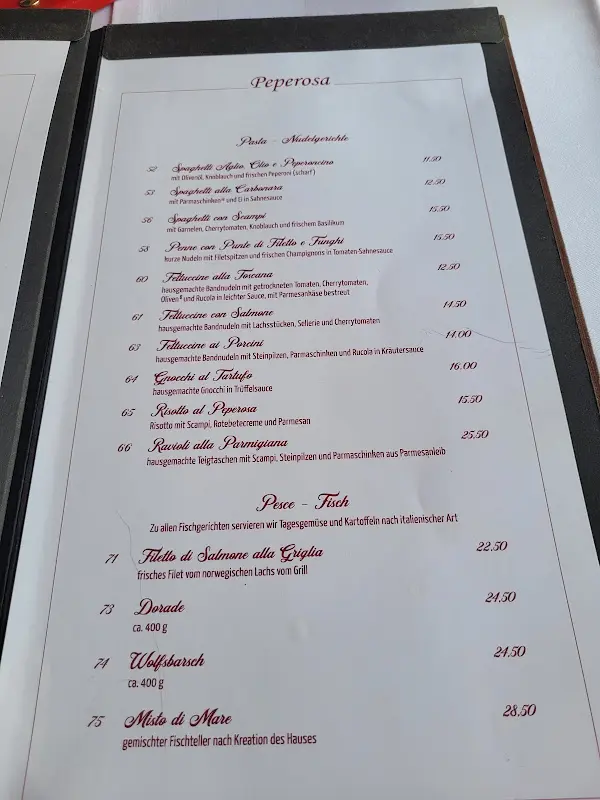 Peperosa
Pasta - Nudelgerichte
52 Spaghetti Aglio, Olio e Peperoncino 11.50
mit Olivenöl, Knoblauch und frischen Peperoni (scharf)
53 Spaghetti alla Carbonara 12.50
mit Parmaschinken* und Ei in Sahnesauce
56 Spaghetti con Scampi 15.50
mit Garnelen, Cherrytomaten, Knoblauch und frischem Basilikum
58 Penne con Punte di Filetto e Funghi 15.50
kurze Nudeln mit Filetspitzen und frischen Champignons in Tomaten-Sahnesauce
60 Fettuccine alla Toscana 12.50
hausgemachte Bandnudeln mit getrockneten Tomaten, Cherrytomaten,
Oliven und Rucola in leichter Sauce, mit Parmesankäse bestreut
61 Fettuccine con Salmone 14.50
hausgemachte Bandnudeln mit Lachsstücken, Sellerie und Cherrytomaten
63 Fettuccine ai Porcini 14.00
hausgemachte Bandnudeln mit Steinpilzen, Parmaschinken und Rucola in Kräutersauce
64 Gnocchi al Tartufo 16.00
hausgemachte Gnocchi in Trüffelsauce
65 Risotto al Peperosa 15.50
Risotto mit Scampi, Rotebetecreme und Parmesan
66 Ravioli alla Parmigiana 25.50
hausgemachte Teigtaschen mit Scampi, Steinpilzen und Parmaschinken aus Parmesanleib
Pesce - Fisch
Zu allen Fischgerichten servieren wir Tagesgemüse und Kartoffeln nach italienischer Art
71 Filetto di Salmone alla Griglia 22.50
frisches Filet vom norwegischen Lachs vom Grill
73 Dorade 24.50
ca. 400 g
74 Wolfsbarsch 24.50
ca. 400 g
75 Misto di Mare 28.50
gemischter Fischteller nach Kreation des Hauses